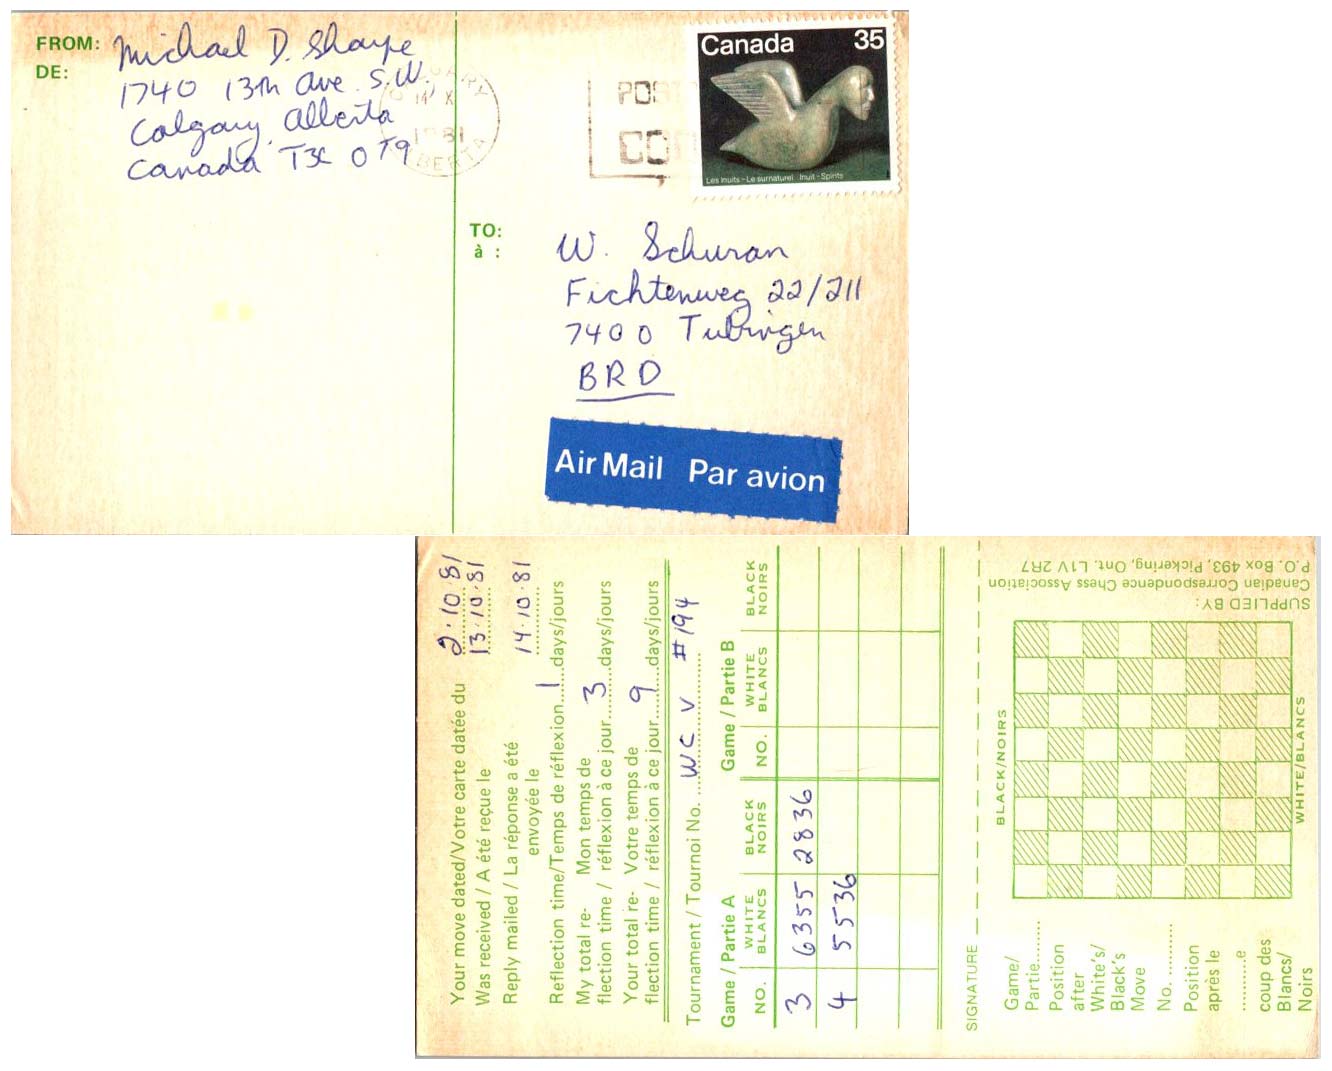 FROM: Michael D. Sharpe
DE: 1740 13th Ave. S.W.
Calgary, Alberta
Canada T3C 0T9
CALGARY
14 X
1981
ALBERTA
POST
COD
Canada 35
Les Inuits - Le surnaturel Inuit - Spirits
TO:
à :
W. Schuran
Fichtenweg 22/211
7400 Tubingen
BRD
Air Mail Par avion
Your move dated/Votre carte datée du 2.10.81
Was received / A été reçue le 13.10.81
Reply mailed / La réponse a été
envoyée le 14.10.81
Reflection time/Temps de réflexion 1 days/jours
My total re- Mon temps de
flection time / réflexion à ce jour 3 days/jours
Your total re- Votre temps de
flection time / réflexion à ce jour 9 days/jours
Tournament / Tournoi No. WC V #194
Game / Partie A Game / Partie B
NO. WHITE BLANCS BLACK NOIRS NO. WHITE BLANCS BLACK NOIRS
3 6355 2836
4 5536
SIGNATURE
Game/
Partie
Position
after
White's/
Black's
Move
No.
Position
après le
e
coup des
Blancs/
Noirs
BLACK/NOIRS
WHITE/BLANCS
SUPPLIED BY:
Canadian Correspondence Chess Association
P.O. Box 493, Pickering, Ont. L1V 2R7